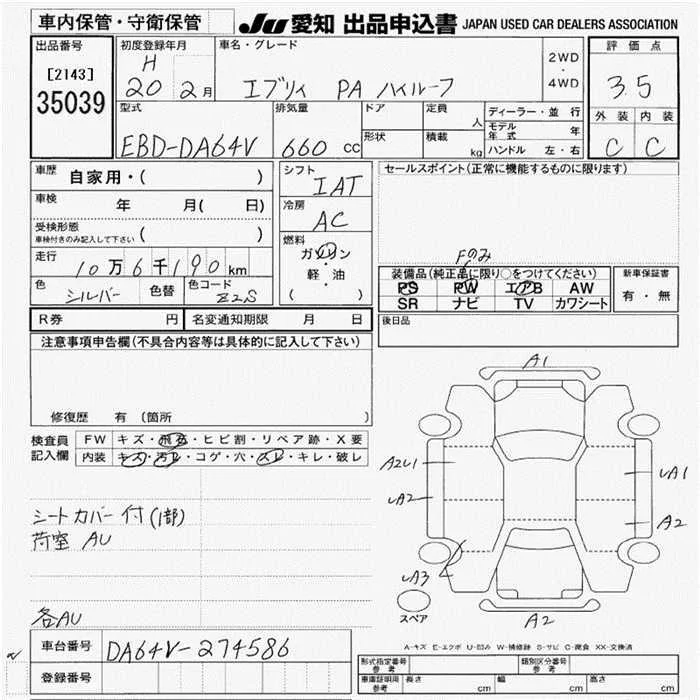 車内保管・守衛保管
JU 愛知 出品申込書 JAPAN USED CAR DEALERS ASSOCIATION
出品番号
[2143]
35039
初度登録年月
H
20 2月
車名・グレード
エブリィ PA ハイルーフ
2WD
・
4WD
評価点
3.5
外装 内装
C C
型式
EBD-DA64V
排気量
660 cc
ドア
形状
定員
人
積載
kg
ディーラー・並行
モデル年式 年
ハンドル 左・右
車歴
自家用・( )
車検
年 月( 日)
受検形態
車検付きのみ記入して下さい ( )
走行
10万6千190km
色
シルバー
色替
色コード
Z2S
シフト
IAT
冷房
AC
燃料
ガソリン
・
軽・油
( )
セールスポイント(正常に機能するものに限ります)
Fのみ
装備品(純正品に限り○をつけてください)
PS PW エアB AW
SR ナビ TV カワシート
新車保証書
有・無
R券 円
名変通知期限 月 日
後日品
注意事項申告欄(不具合内容等は具体的に記入して下さい)
修復歴 有(箇所 )
検査員
記入欄
FW キズ・飛石・ヒビ割・リペア跡・X要
内装 キズ・汚レ・コゲ・穴・スレ・キレ・破レ
シートカバー付(1部)
荷室 AU
各AU
A1
A2U1
UA2
UA3
UA1
A2
A2
スペア
A-キズ E-エクボ U-凹み W-補修跡 S-サビ C-腐食 XX-交換済
車台番号
DA64V-274586
登録番号
形式指定番号
参考
類別区分番号
参考
車庫証明用
参考
長さ cm
幅 cm
高さ cm